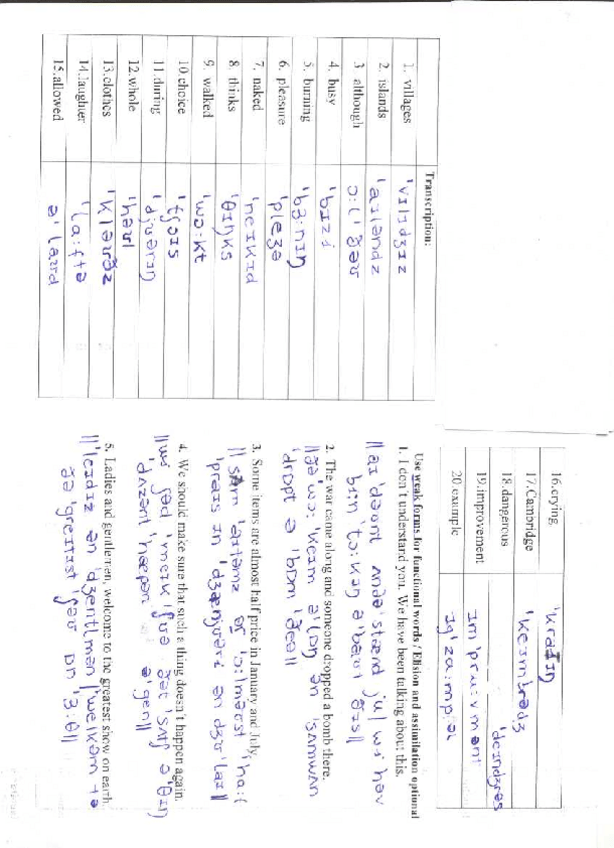 Transcription:
1. villages ˈvɪlɪdʒɪz
2. islands ˈaɪləndz
3 although ɔːlˈðəʊ
4. busy ˈbɪzi
5. burning ˈbɜːnɪŋ
6. pleasure ˈpleʒə
7. naked ˈneɪkɪd
8. thinks ˈθɪŋks
9. walked ˈwɔːkt
10.choice ˈtʃɔɪs
11.during ˈdjʊərɪŋ
12.whole ˈhəʊl
13.clothes ˈkləʊðz
14.laughter ˈlɑːftə
15.allowed əˈlaʊd
16.crying ˈkraɪɪŋ
17.Cambridge ˈkeɪmbrɪdʒ
18.dangerous ˈdeɪndʒrəs
19.improvement ɪmˈpruːvmənt
20.example ɪgˈzɑːmpəl
Use weak forms for functional words / Elision and assimilation optional
1. I don't understand you. We have been talking about this.
||aɪ ˈdəʊnt ʌndəˈstænd ju| wi həv
bɪn ˈtɔːkɪŋ əˈbaʊt ðɪs||
2. The war came along and someone dropped a bomb there.
||ðə ˈwɔː ˈkeɪm əˈlɒŋ ən ˈsʌmwʌn
ˈdrɒpt ə ˈbɒm ˈðeə||
3. Some items are almost half price in January and July.
|| sʌm ˈaɪtəmz ər ˈɔːlməʊst ˈhɑːf
ˈpraɪs ɪn ˈdʒænjʊəri ən dʒʊˈlaɪ||
4. We should make sure that such a thing doesn't happen again.
||wi ʃəd ˈmeɪk ʃʊə ðət sʌtʃ ə ˈθɪŋ
ˈdʌzənt ˈhæpən əˈgen||
5. Ladies and gentlemen, welcome to the greatest show on earth.
||ˈleɪdiz ən ˈdʒentlmən |ˈwelkəm tə
ðə ˈgreɪtɪst ʃəʊ ɒn ˈɜːθ||